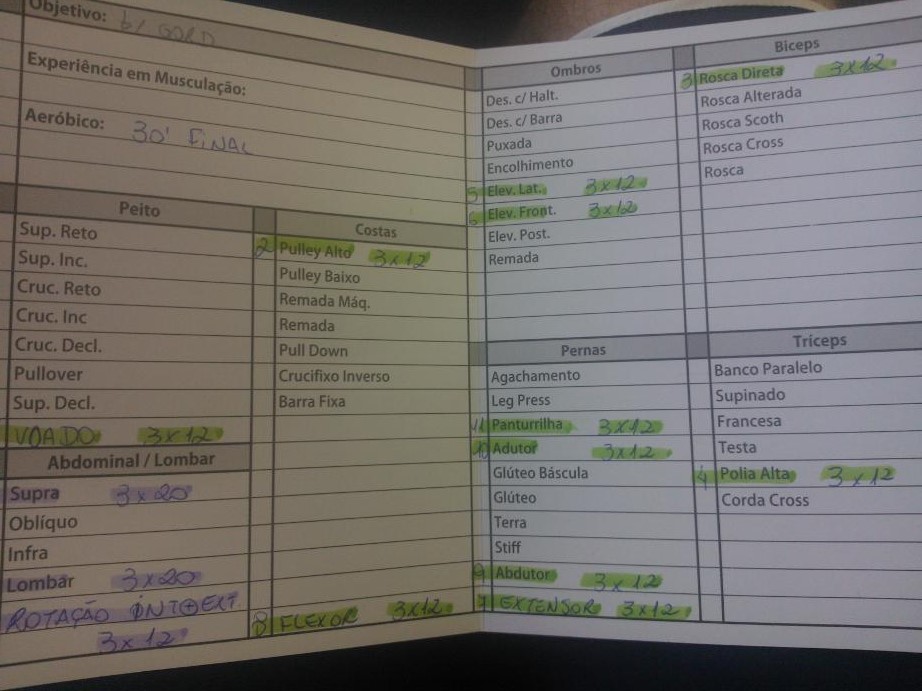 Objetivo:
Experiência em Musculação:
Aeróbico: 30' FINAL
Peito
Sup. Reto
Sup. Inc.
Cruc. Reto
Cruc. Inc
Cruc. Decl.
Pullover
Sup. Decl.
VOADO 3x12
Abdominal / Lombar
Supra 3x20
Oblíquo
Infra
Lombar 3x20
ROTAÇÃO INT+EXT.
3x12
Costas
2 Pulley Alto 3x12
Pulley Baixo
Remada Máq.
Remada
Pull Down
Crucifixo Inverso
Barra Fixa
8 FLEXOR 3x12
Ombros
Des. c/ Halt.
Des. c/ Barra
Puxada
Encolhimento
5 Elev. Lat. 3x12
6 Elev. Front. 3x12
Elev. Post.
Remada
Pernas
Agachamento
Leg Press
11 Panturrilha 3x12
10 Adutor 3x12
Glúteo Báscula
Glúteo
Terra
Stiff
9 Abdutor 3x12
7 EXTENSOR 3x12
Biceps
3 Rosca Direta 3x12
Rosca Alterada
Rosca Scoth
Rosca Cross
Rosca
Tríceps
Banco Paralelo
Supinado
Francesa
Testa
4 Polia Alta 3x12
Corda Cross